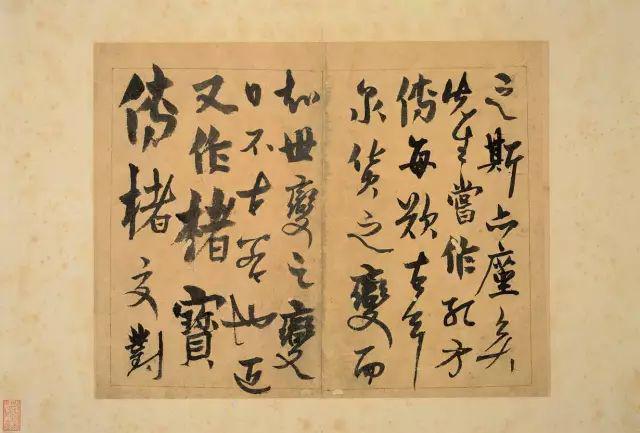 之斯亦矣
先生嘗作孔方
傳每歎古今
泉貨之變而
知世變之變
日不古若也近
又作楮寶
傳楮對